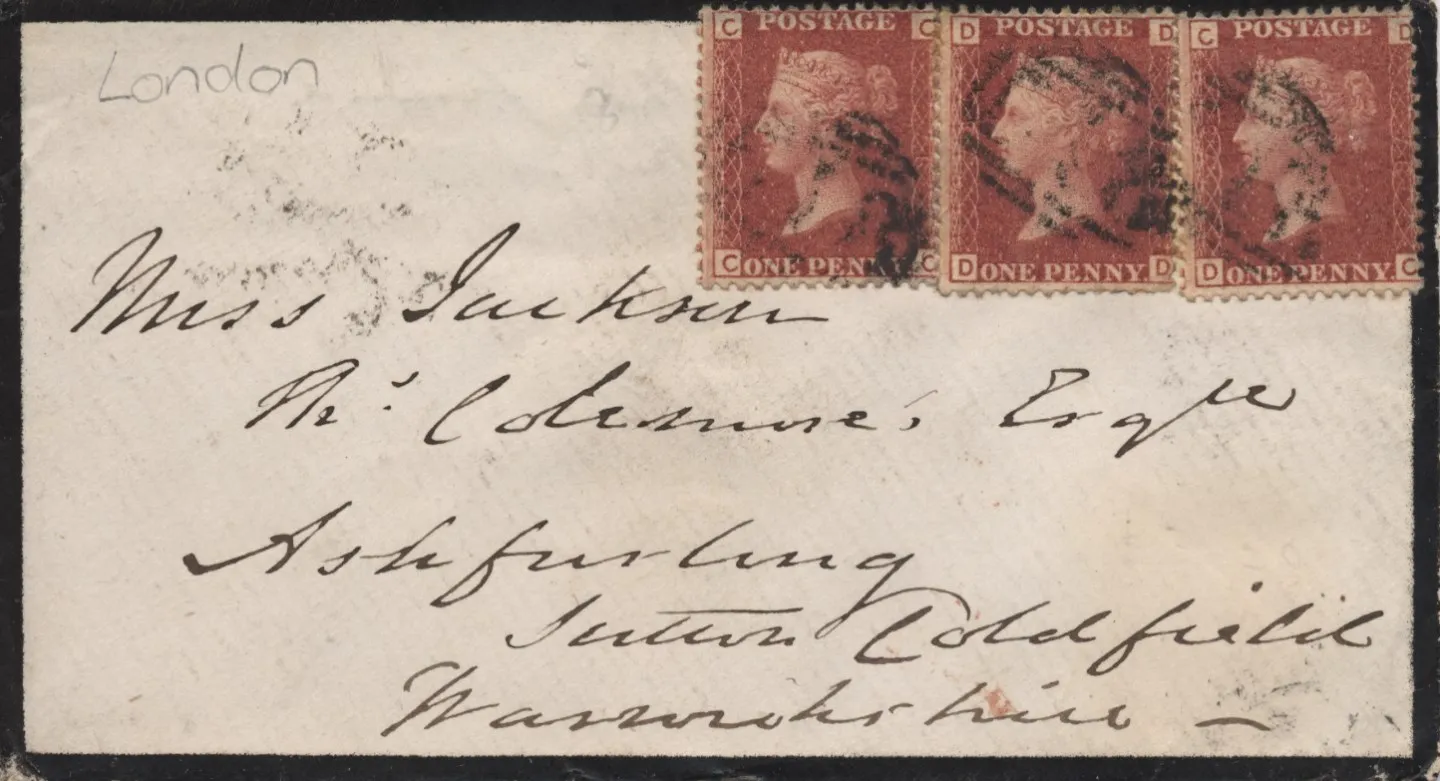 London
C POSTAGE C
C ONE PENNY C
D POSTAGE D
D ONE PENNY D
C POSTAGE D
D ONE PENNY C
Miss Jackson
Colemore's Esqre
Ashfurlong
Sutton Coldfield
Warwickshire